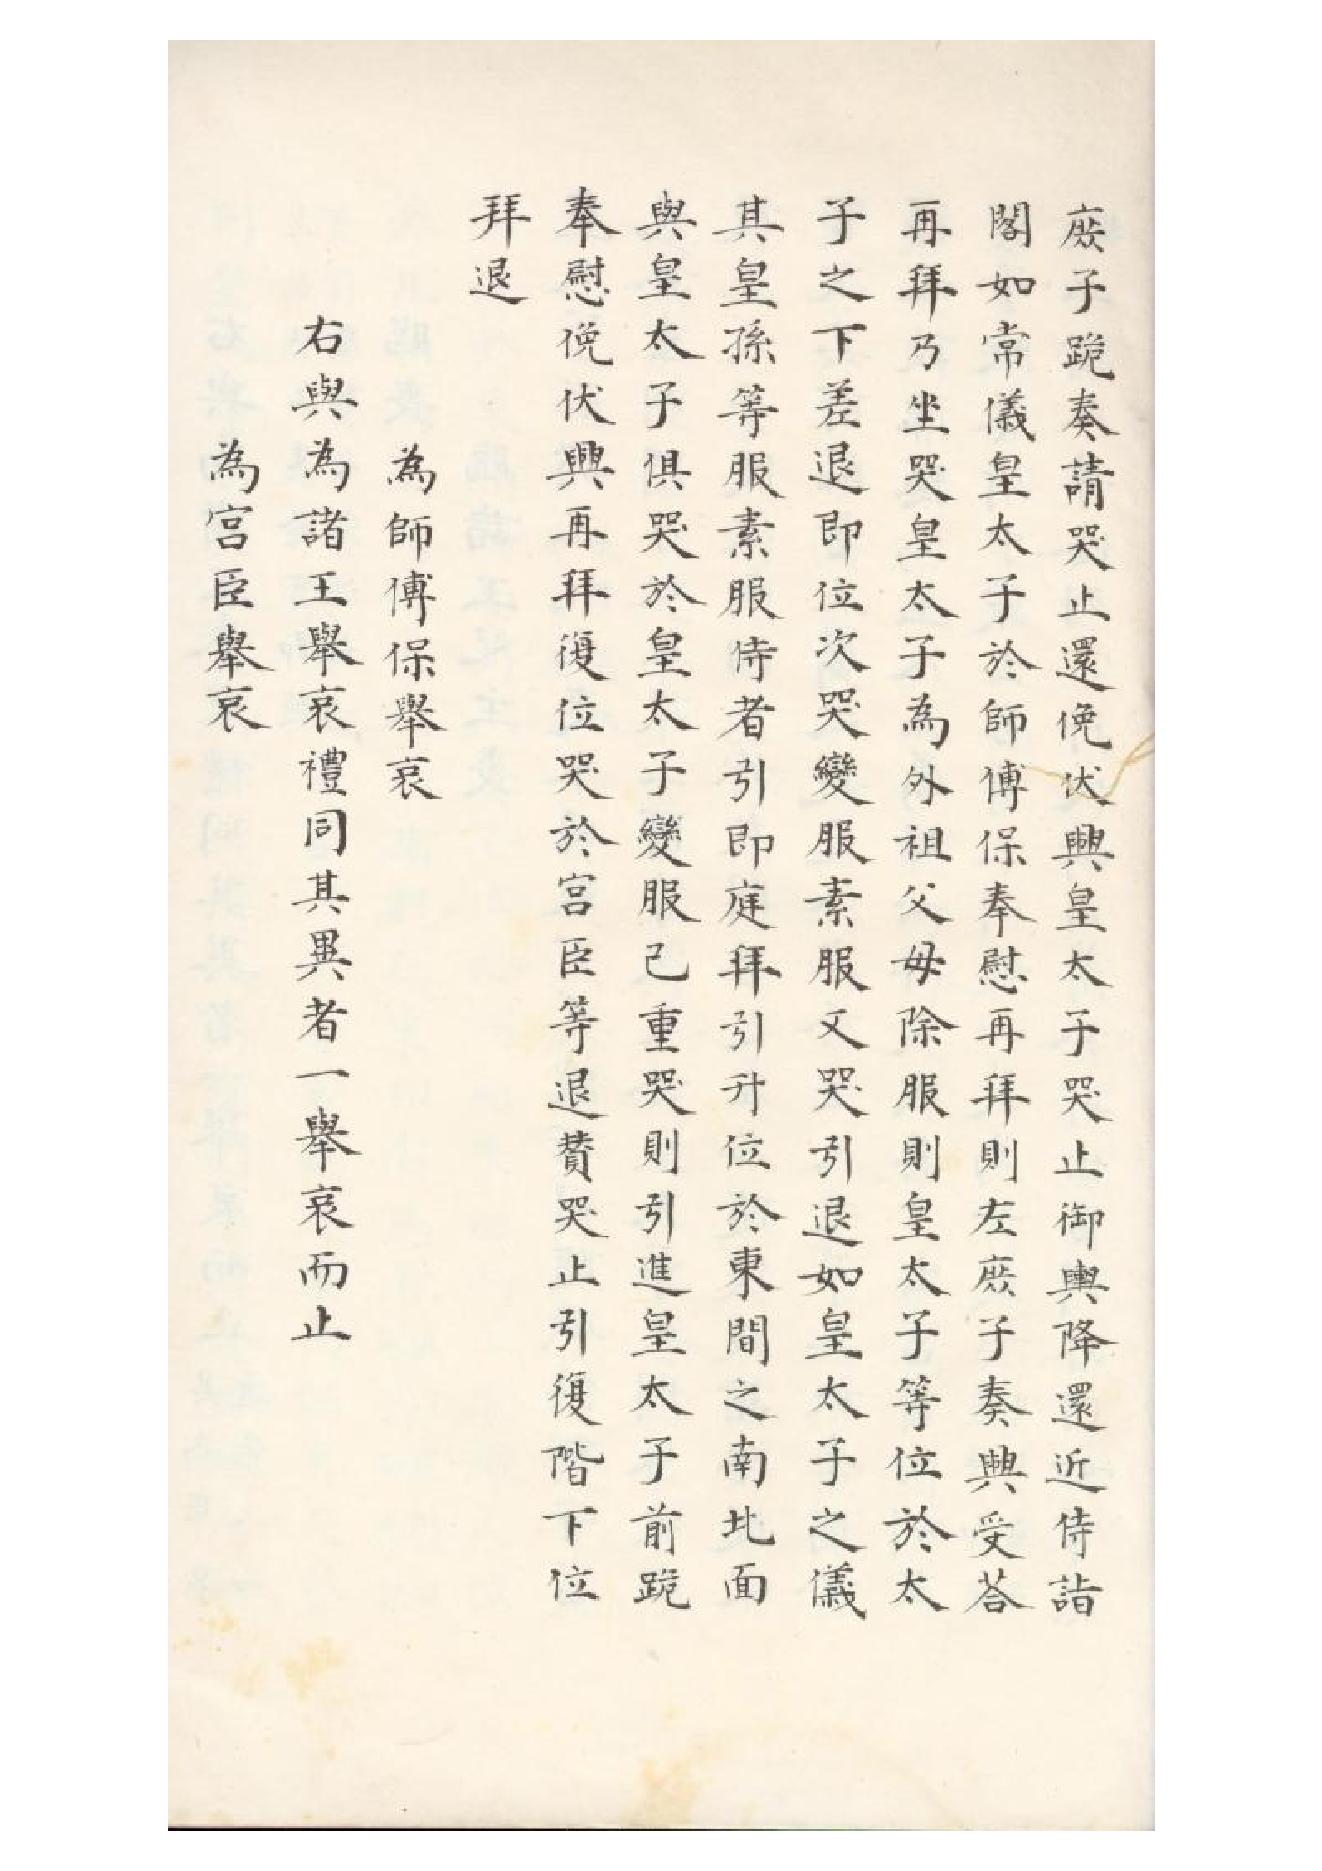 庻子跪奏請哭止還俛伏興皇太子哭止御輿降還近侍詣
閤如常儀皇太子於師傅保奉慰再拜則左庻子奏興受荅
再拜乃坐哭皇太子為外祖父母除服則皇太子等位於太
子之下差退即位次哭變服素服又哭引退如皇太子之儀
其皇孫等服素服侍者引即庭拜引升位於東間之南北面
與皇太子俱哭於皇太子變服已重哭則引進皇太子前跪
奉慰俛伏興再拜復位哭於宫臣等退賛哭止引復階下位
拜退
為師傅保舉哀
右與為諸王舉哀禮同其異者一舉哀而止
為宫臣舉哀